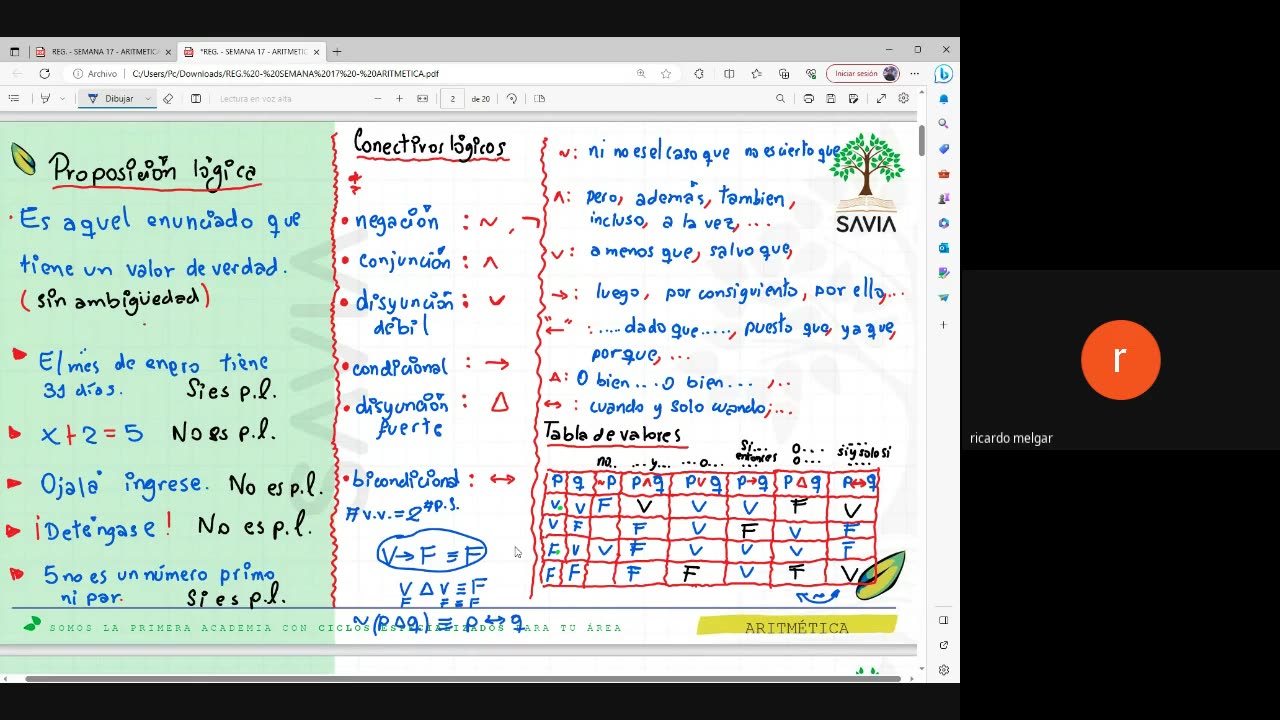 REG. - SEMANA 17 - ARITMETICA
*REG. - SEMANA 17 - ARITMETIC
Archivo C:/Users/Pc/Downloads/REG.%20-%20SEMANA%2017%20-%20ARITMETICA.pdf
Iniciar sesión
Dibujar
Lectura en voz alta
2 de 20
Proposición lógica
Es aquel enunciado que
tiene un valor de verdad.
(sin ambigüedad)
El mes de enero tiene
31 días. Si es p.l.
x + 2 = 5 No es p.l.
Ojala ingrese. No es p.l.
¡Deténgase! No es p.l.
5 no es un número primo
ni par. Si es p.l.
Conectivos lógicos
negación : ~, ¬
conjunción : ∧
disyunción : ∨
débil
condicional : →
disyunción : Δ
fuerte
bicondicional : ↔
# v.v. = 2^#p.s.
V → F ≡ F
V Δ V ≡ F
F F ≡ F
~(p Δ q) ≡ p ↔ q
~: ni no es el caso que no es cierto que
∧: pero, además, tambien,
incluso, a la vez, ...
∨: a menos que, salvo que,
→: luego, por consiguiento, por ello,...
"←" : .... dado que....., puesto que, ya que,
porque, ...
Δ: O bien ... O bien ... , ...
↔ : cuando y solo cuando; ...
SAVIA
Tabla de valores
no.. ...y... ...o... Si... entonces ... O... O... .... si y solo si ....
p q ~p p∧q p∨q p→q pΔq p↔q
V V F V V V F V
V F F V F V F
F V V F V V V F
F F F F V F V
SOMOS LA PRIMERA ACADEMIA CON CICLOS ESPECIALIZADOS PARA TU ÁREA
ARITMÉTICA
r
ricardo melgar